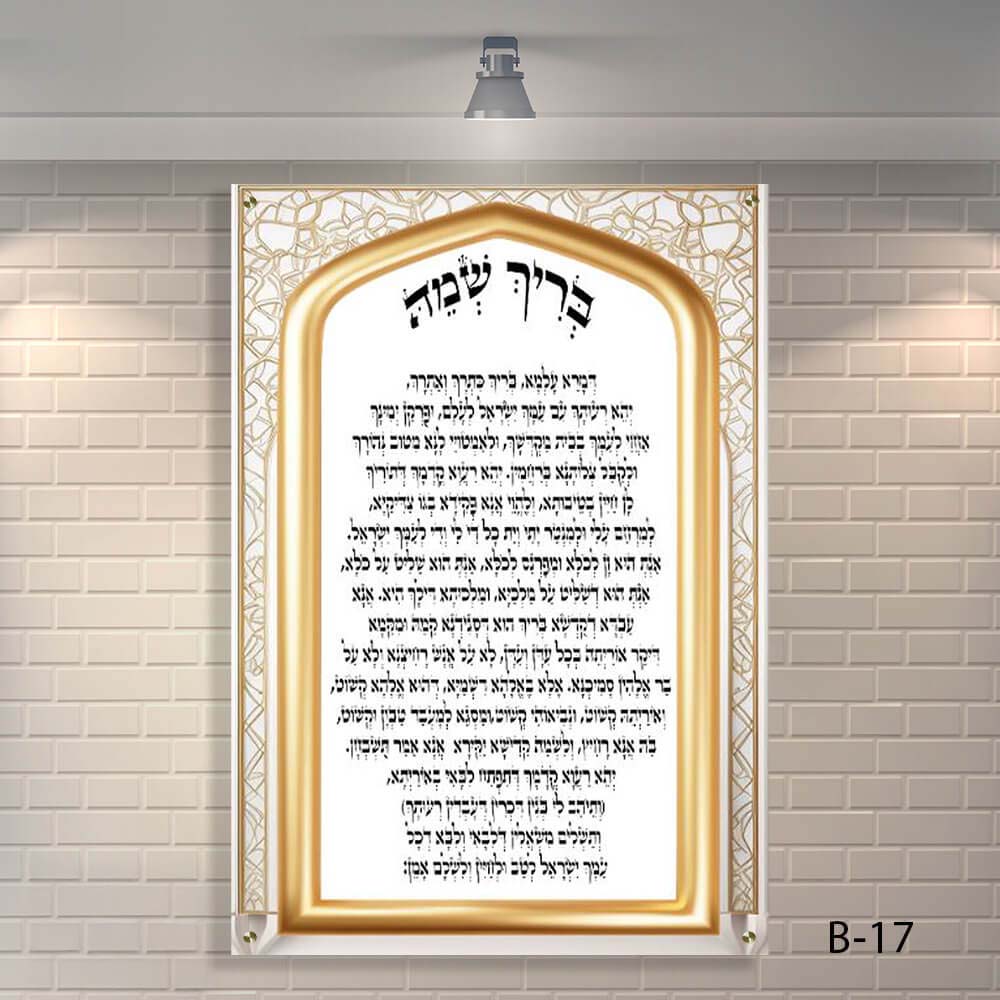 בְּרִיךְ שְׁמֵהּ
דְּמָרֵא עָלְמָא, בְּרִיךְ כִּתְרָךְ וְאַתְרָךְ,
יְהֵא רְעוּתָךְ עִם עַמָּךְ יִשְׂרָאֵל לְעָלַם, וּפֻרְקַן יְמִינָךְ
אַחֲזֵי לְעַמָּךְ בְּבֵית מִקְדָּשָׁךְ, וּלְאַמְטוּיֵי לָנָא מִטּוּב נְהוֹרָךְ
וּלְקַבֵּל צְלוֹתָנָא בְּרַחֲמִין. יְהֵא רַעֲוָא קֳדָמָךְ דְּתוֹרִיךְ
לָן חַיִּין בְּטִיבוּתָא, וְלֶהֱוֵי אֲנָא פְּקִידָא בְּגוֹ צַדִּיקַיָּא,
לְמִרְחַם עָלַי וּלְמִנְטַר יָתִי וְיַת כָּל דִּי לִי וְדִי לְעַמָּךְ יִשְׂרָאֵל.
אַנְתְּ הוּא זָן לְכֹלָּא וּמְפַרְנֵס לְכֹלָּא, אַנְתְּ הוּא שַׁלִּיט עַל כֹּלָּא,
אַנְתְּ הוּא דְּשַׁלִּיט עַל מַלְכַיָּא, וּמַלְכוּתָא דִּילָךְ הִיא. אֲנָא
עַבְדָּא דְקֻדְשָׁא בְּרִיךְ הוּא דְּסָגִידְנָא קַמֵּהּ וּמִקַּמָּא
דִּיקַר אוֹרַיְתֵהּ בְּכָל עִדָּן וְעִדָּן, לָא עַל אֱנָשׁ רָחִיצְנָא וְלָא עַל
בַּר אֱלָהִין סָמִיכְנָא. אֶלָּא בֶּאֱלָהָא דִשְׁמַיָּא, דְּהוּא אֱלָהָא קְשׁוֹט,
וְאוֹרַיְתֵהּ קְשׁוֹט, וּנְבִיאוֹהִי קְשׁוֹט,וּמַסְגֵּא לְמֶעְבַּד טַבְוָן וּקְשׁוֹט,
בֵּהּ אֲנָא רָחִיץ, וְלִשְׁמֵהּ קַדִּישָׁא יַקִּירָא אֲנָא אֵמַר תֻּשְׁבְּחָן.
יְהֵא רַעֲוָא קֳדָמָךְ דְּתִפְתַּח לִבָּאִי בְּאוֹרַיְתָא,
(וְתֵיהַב לִי בְּנִין דִּכְרִין דְּעָבְדִין רְעוּתָךְ)
וְתַשְׁלִים מִשְׁאֲלִין דְּלִבָּאִי וְלִבָּא דְכָל
עַמָּךְ יִשְׂרָאֵל לְטַב וּלְחַיִּין וְלִשְׁלָם אָמֵן:
B-17